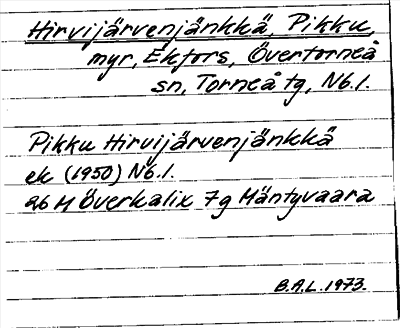 Hirvijärvenjänkkä, Pikku,
myr, Ekfors, Övertorneå
sn, Torneå tg, Nb.l.
Pikku Hirvijärvenjänkkä
ek (1950) Nb.l.
26 M Överkalix 7g Mäntyvaara
B.A.L. 1973.